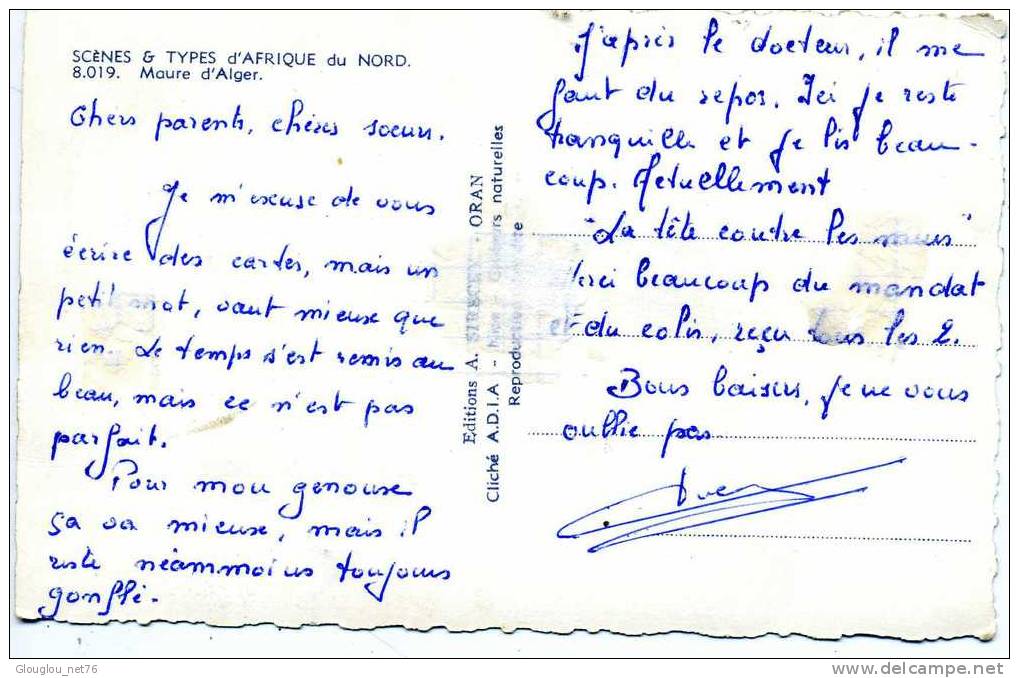 SCèNES & TYPES d'AFRIQUE du NORD.
8.019. Maure d'Alger.
Chers parents, chères soeurs.
Je m'excuse de vous
écrire des cartes, mais un
petit mot, vaut mieux que
rien. Le temps s'est remis au
beau, mais ce n'est pas
parfait.
Pour mon genoux
ça va mieux, mais il
reste néammoins toujours
gonflé.
D'après le docteur, il me
faut du repos. Ici je reste
tranquille et je lis beau-
coup. Actuellement
"La tête contre les murs"
Merci beaucoup du mandat
et du colis, reçu tous les 2.
Bons baisers, je ne vous
oublie pas
Editions A. - ORAN
Cliché A.D.I.A - naturelles
Reproduction
Glouglou_net76
delcampe.net